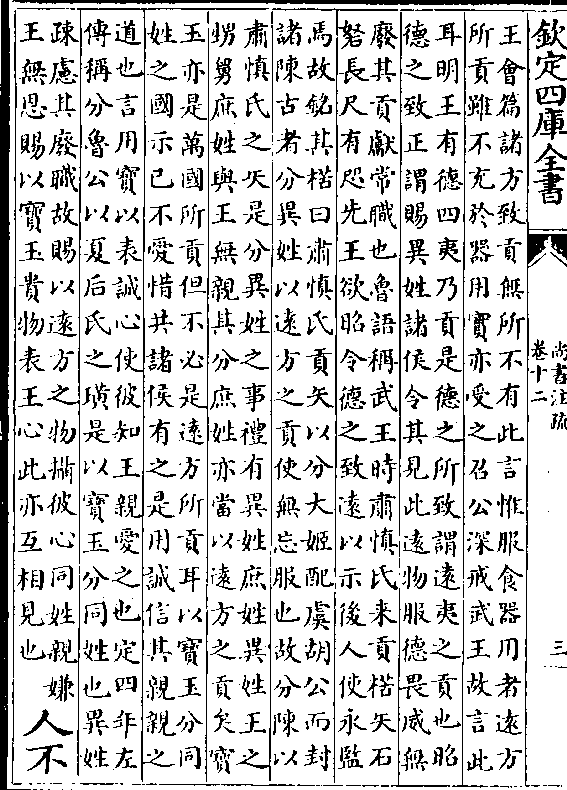 欽定四庫全書
尚書注疏
卷十二
三
王會篇諸方致貢無所不有此言惟服食器用者遠方
所貢雖不充於器用實亦受之召公深戒武王故言此
耳明王有德四夷乃貢是德之所致謂遠夷之貢也昭
德之致正謂賜異姓諸侯令其見此遠物服德畏威無
廢其貢獻常職也魯語稱武王時肅慎氏来貢楛矢石
砮長尺有咫先王欲昭令德之致遠以示後人使永監
焉故銘其楛曰肅慎氏貢矢以分大姬配虞胡公而封
諸陳古者分異姓以遠方之貢使無忘服也故分陳以
肅慎氏之矢是分異姓之事禮有異姓庶姓異姓王之
甥舅庶姓與王無親其分庶姓亦當以遠方之貢矣寶
玉亦是萬國所貢但不必是遠方所貢耳以寶玉分同
姓之國示己不愛惜共諸侯有之是用誠信其親親之
道也言用寶以表誠心使彼知王親愛之也定四年左
傳稱分魯公以夏后氏之璜是以寶玉分同姓也異姓
疎慮其廢職故賜以遠方之物攝彼心同姓親嫌
王無恩賜以寶玉貴物表王心此亦互相見也
人不